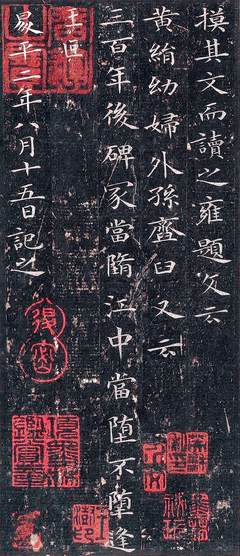 摸其文而讀之雍題文云
黃絹幼婦外孫齏臼又云
三百年後碑冢當墮江中當墮不墮逢
王叵
昜平二年八月十五日記之